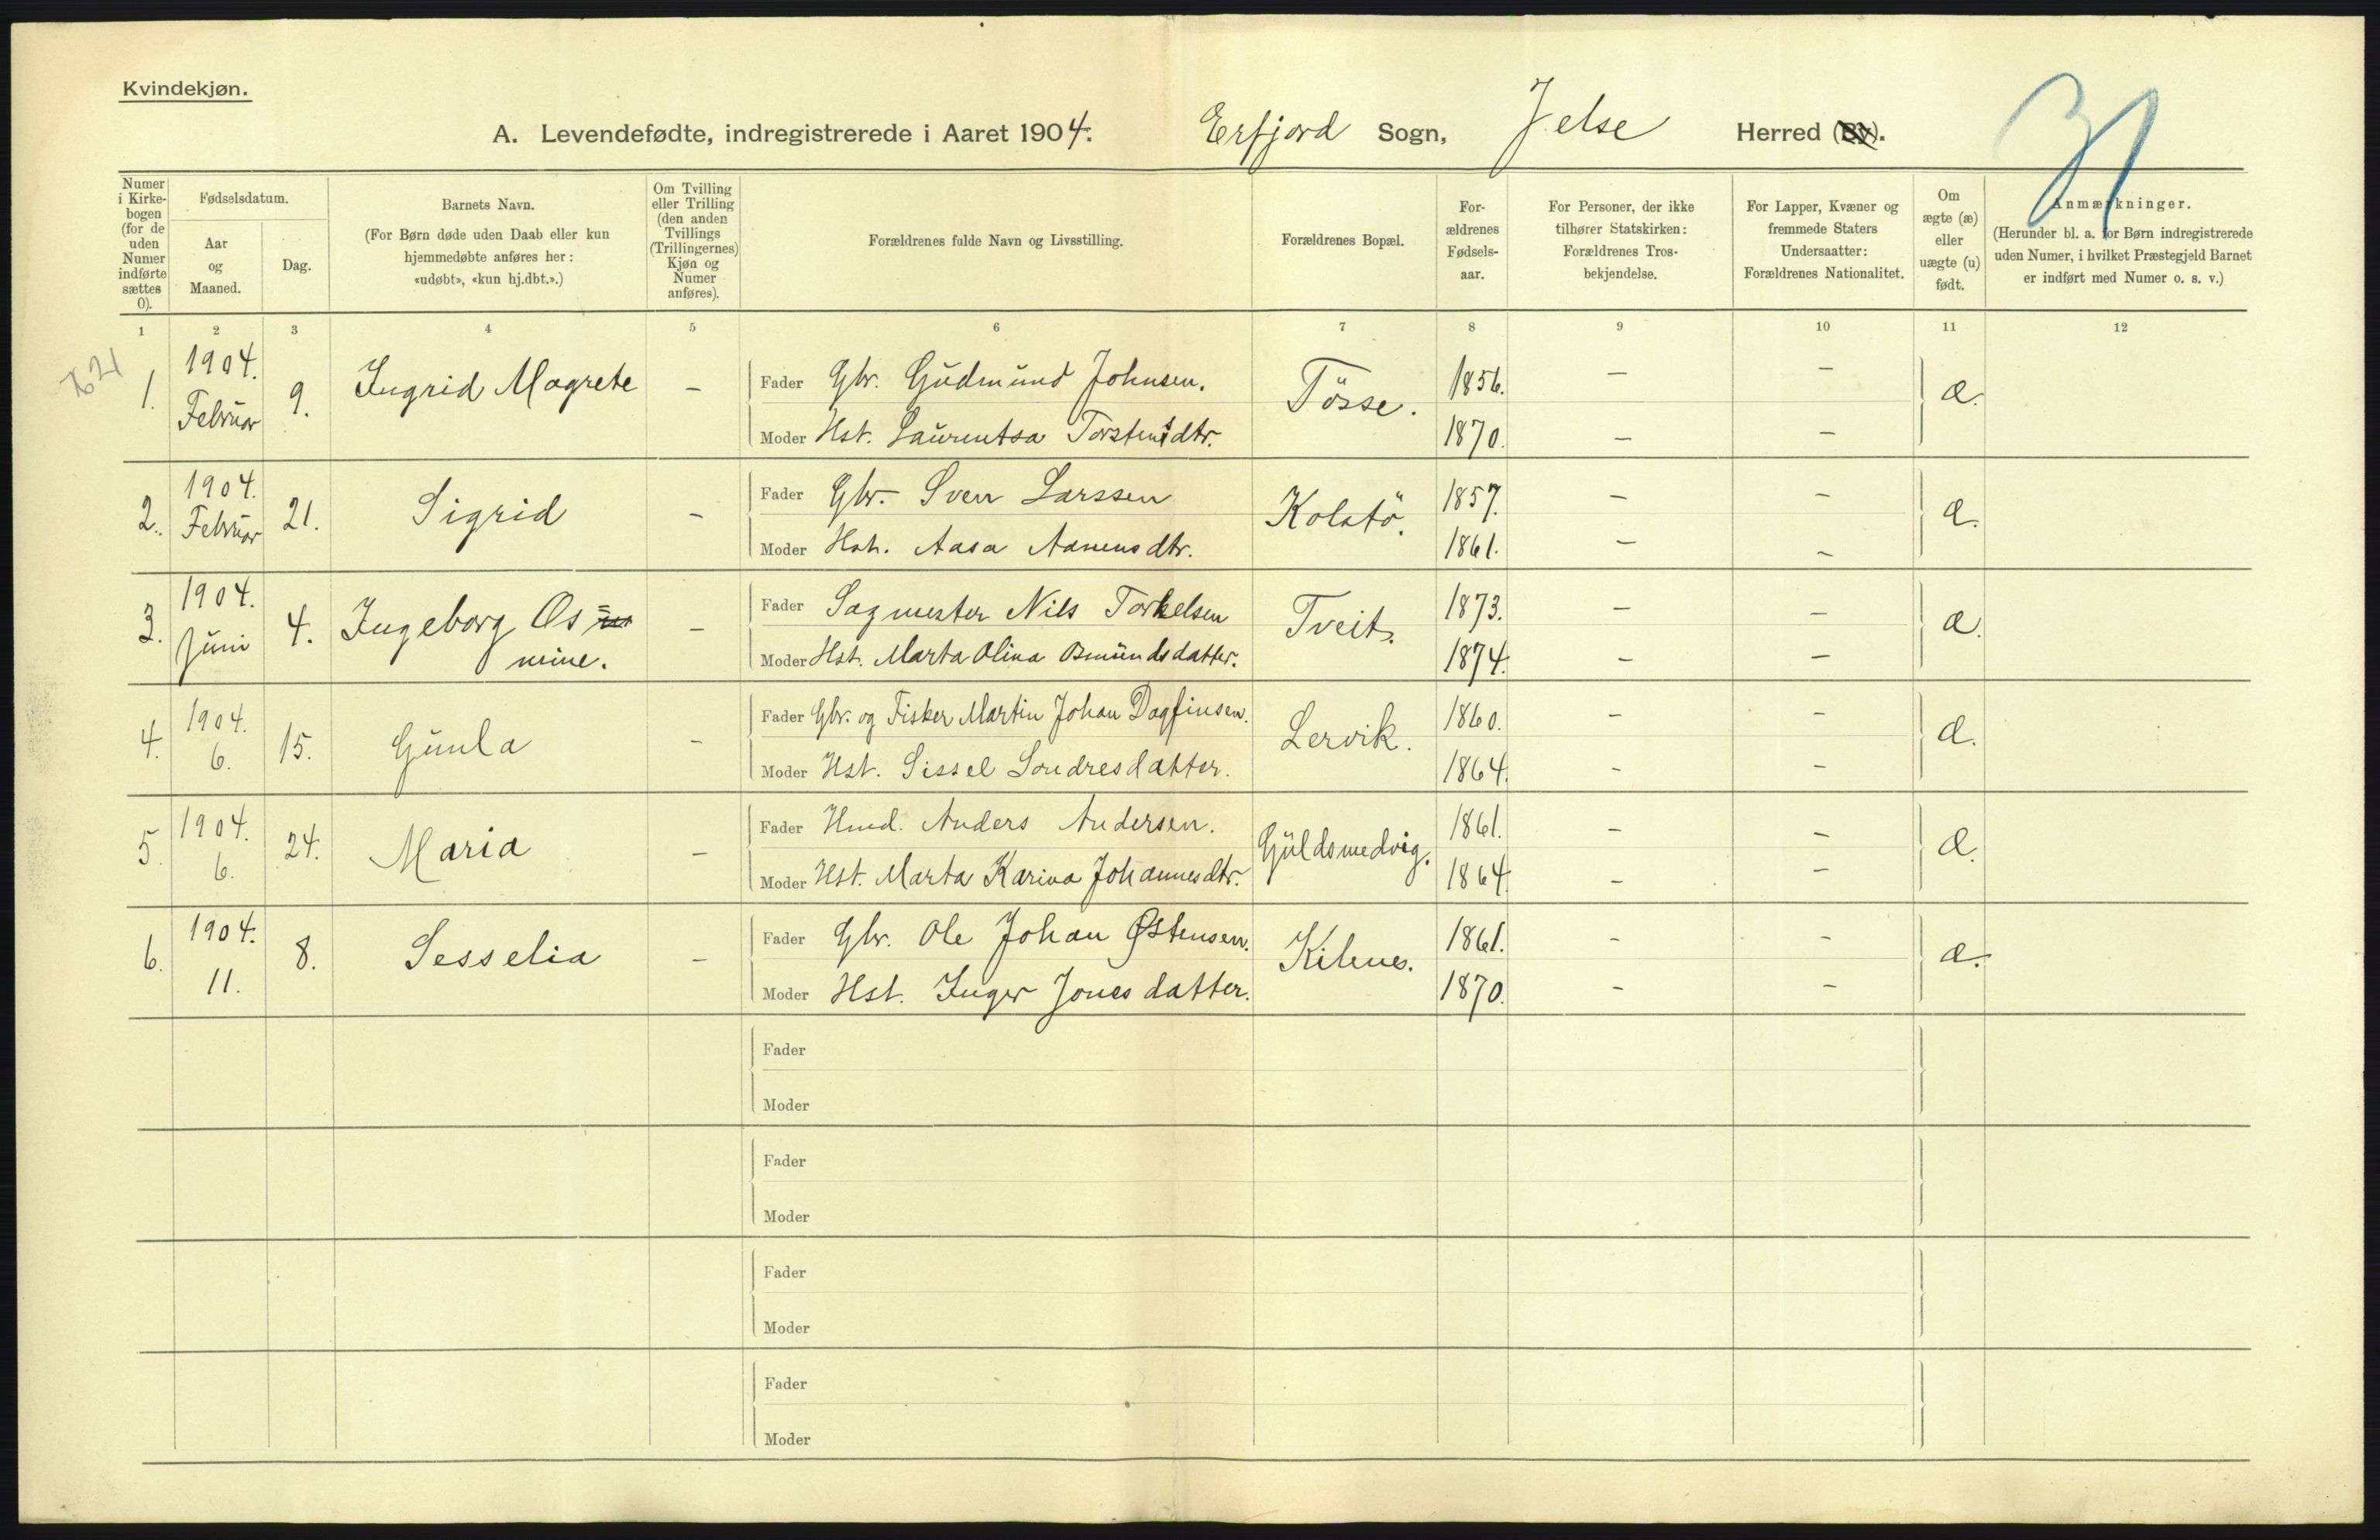 Kvindekjøn.
A. Levendefødte, indregistrerede i Aaret 1904. Erfjord Sogn, Jelse Herred (By).
31
Numer i Kirkebogen (for de uden Numer indførte sættes 0).
Fødselsdatum.
Aar og Maaned.
Dag.
Barnets Navn.
(For Børn døde uden Daab eller kun hjemmedøbte anføres her: «udøbt», «kun hj.dbt.».)
Om Tvilling eller Trilling (den anden Tvillings (Trillingernes) Kjøn og Numer anføres).
Forældrenes fulde Navn og Livsstilling.
Forældrenes Bopæl.
Forældrenes Fødselsaar.
For Personer, der ikke tilhører Statskirken: Forældrenes Trosbekjendelse.
For Lapper, Kvæner og fremmede Staters Undersaatter: Forældrenes Nationalitet.
Om ægte (æ) eller uægte (u) født.
Anmærkninger.
(Herunder bl. a. for Børn indregistrerede uden Numer, i hvilket Præstegjeld Barnet er indført med Numer o. s. v.)
1 2 3 4 5 6 7 8 9 10 11 12
1. 1904. Februar 9. Ingrid Magrete – Fader Gbr. Gudmund Johnsen. Tösse. 1856. – – æ.
Moder Hst. Laurentsa Torstensdtr. 1870. – –
2. 1904. Februar 21. Sigrid – Fader Gbr. Sven Larssen Kolstö. 1857. – – æ.
Moder Hst. Aasa Aanensdtr. 1861. – –
3. 1904. Juni 4. Ingeborg Osmine. – Fader Sagmester Nils Torkelsen Tveit. 1873. – – æ.
Moder Hst. Marta Olina Osmundsdatter. 1874. – –
4. 1904. 6. 15. Gunla – Fader Gbr. og Fisker Martin Johan Dagfinsen. Lervik. 1860. – – æ.
Moder Hst. Sissel Sondresdatter. 1864. – –
5. 1904. 6. 24. Maria – Fader Hmd. Anders Andersen. Guldsmedvig. 1861. – – æ.
Moder Hst. Marta Karina Johannesdtr. 1864. – –
6. 1904. 11. 8. Sesselia – Fader Gbr. Ole Johan Østensen. Kilenes. 1861. – – æ.
Moder Hst. Inger Jonesdatter. 1870. – –
Fader
Moder
Fader
Moder
Fader
Moder
Fader
Moder